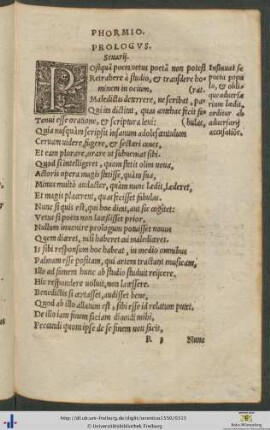 PHORMIO.
PROLOGVS.
Senarij.
POstquā poeta vetus poetā non potest
Retrahere à studio, & transdere ho-
minem in ocium,
Maledictis deterrere, ne scribat, parat.
Qui ita dictitat, quas antehac fecit fabulas,
Tenui esse oratione, & scriptura leui:
Quia nusquàm scripsit insanum adolescentulum
Ceruam videre fugere, & sectari canes,
Et eam plorare, orare ut subueniat sibi.
Quod si intelligeret, quum stetit olim noua,
Actoris opera magis stetisse, quàm sua,
Minus multò audacter, quàm nunc lædit, læderet,
Et magis placerent, quas fecisset fabulas.
Nunc si quis est, qui hoc dicat, aut sic cogitet:
Vetus si poeta non lacessisset prior,
Nullum inuenire prologum potuisset nouus
Quem diceret, nisi haberet cui malediceret.
Is sibi responsum hoc habeat, in medio omnibus
Palmam esse positam, qui artem tractant musicam,
Ille ad famem hunc ab studio studuit reijcere,
Hic respondere voluit, non lacessere.
Benedictis si certasset, audisset bene,
Quod ab illo allatum est, sibi esse id relatum putet.
De illo iam finem faciam dicundi mihi,
Peccandi quom ipse de se finem non facit,
Nunc
http://dl.ub.uni-freiburg.de/diglit/terentius1550/0315
© Universitätsbibliothek Freiburg